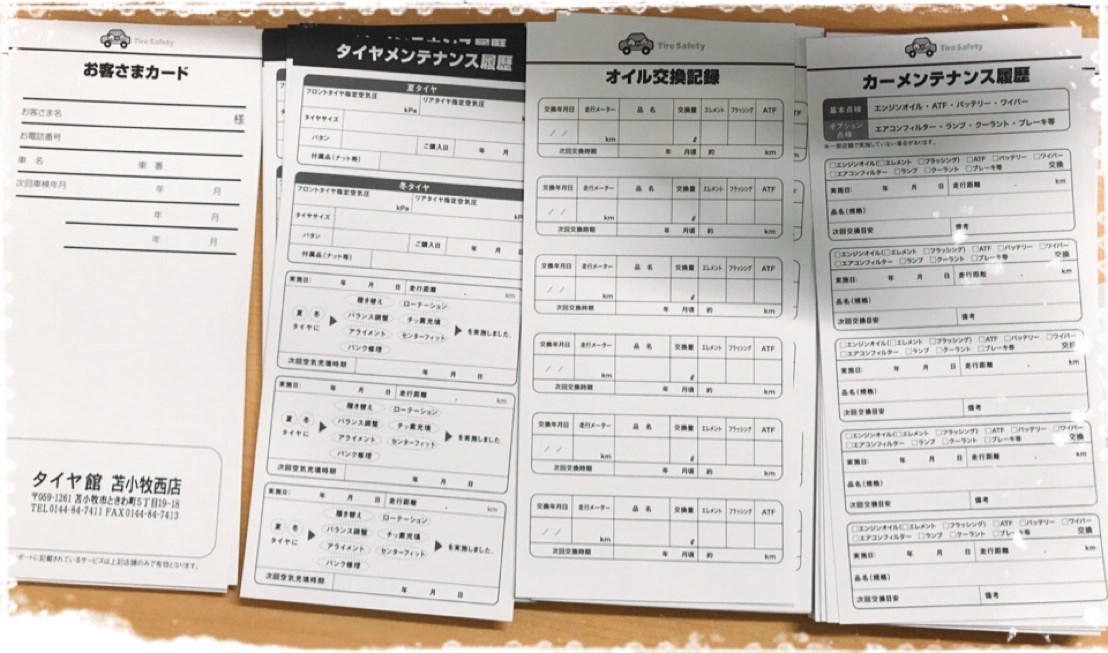 お客さまカード
お客さま名 様
お電話番号
車 名 車 番
次回車検年月 年 月
年 月
年 月
タイヤ館 苫小牧西店
〒059-1261 苫小牧市ときわ町5丁目19-18
TEL0144-84-7411 FAX0144-84-7413
ポートに記載されているサービスは上記店舗のみで有効となります。
タイヤメンテナンス履歴
夏タイヤ
フロントタイヤ指定空気圧 リアタイヤ指定空気圧
kPa
タイヤサイズ
パタン ご購入日 年 月
付属品(ナット等)
冬タイヤ
フロントタイヤ指定空気圧 リアタイヤ指定空気圧
kPa
タイヤサイズ
パタン ご購入日 年 月 日
付属品(ナット等)
実施日: 年 月 日 走行距離 . km
夏 冬 タイヤに
履き替え ローテーション
バランス調整 チッ素充填
アライメント センターフィット
パンク修理
を実施しました。
次回空気充填時期 年 月 日
実施日: 年 月 日 走行距離 . km
夏 冬 タイヤに
履き替え ローテーション
バランス調整 チッ素充填
アライメント センターフィット
パンク修理
を実施しました。
次回空気充填時期 年 月 日
実施日: 年 月 日 走行距離 . km
夏 冬 タイヤに
履き替え ローテーション
バランス調整 チッ素充填
アライメント センターフィット
パンク修理
を実施しました。
次回空気充填時期 年 月 日
Tire Safety
オイル交換記録
交換年月日 走行メーター 品 名 交換量 エレメント フラッシング ATF
/ / km ℓ
次回交換時期 年 月頃 約 km
交換年月日 走行メーター 品 名 交換量 エレメント フラッシング ATF
/ / km ℓ
次回交換時期 年 月頃 約 km
交換年月日 走行メーター 品 名 交換量 エレメント フラッシング ATF
/ / km ℓ
次回交換時期 年 月頃 約 km
交換年月日 走行メーター 品 名 交換量 エレメント フラッシング ATF
/ / km ℓ
次回交換時期 年 月頃 約 km
交換年月日 走行メーター 品 名 交換量 エレメント フラッシング ATF
/ / km ℓ
次回交換時期 年 月頃 約 km
交換年月日 走行メーター 品 名 交換量 エレメント フラッシング ATF
/ / km ℓ
次回交換時期 年 月頃 約 km
Tire Safety
カーメンテナンス履歴
基本点検 エンジンオイル・ATF・バッテリー・ワイパー
オプション点検 エアコンフィルター・ランプ・クーラント・ブレーキ等
※一部店舗で実施していない場合があります。
□エンジンオイル(□エレメント □フラッシング) □ATF □バッテリー □ワイパー
□エアコンフィルター □ランプ □クーラント □ブレーキ等 交換
実施日: 年 月 日 走行距離 . km
品名(規格)
次回交換目安 備考
□エンジンオイル(□エレメント □フラッシング) □ATF □バッテリー □ワイパー
□エアコンフィルター □ランプ □クーラント □ブレーキ等 交換
実施日: 年 月 日 走行距離 . km
品名(規格)
次回交換目安 備考
□エンジンオイル(□エレメント □フラッシング) □ATF □バッテリー □ワイパー
□エアコンフィルター □ランプ □クーラント □ブレーキ等 交換
実施日: 年 月 日 走行距離 . km
品名(規格)
次回交換目安 備考
□エンジンオイル(□エレメント □フラッシング) □ATF □バッテリー □ワイパー
□エアコンフィルター □ランプ □クーラント □ブレーキ等 交換
実施日: 年 月 日 走行距離 . km
品名(規格)
次回交換目安 備考
□エンジンオイル(□エレメント □フラッシング) □ATF □バッテリー □ワイパー
□エアコンフィルター □ランプ □クーラント □ブレーキ等 交換
実施日: 年 月 日 走行距離 . km
品名(規格)
次回交換目安 備考